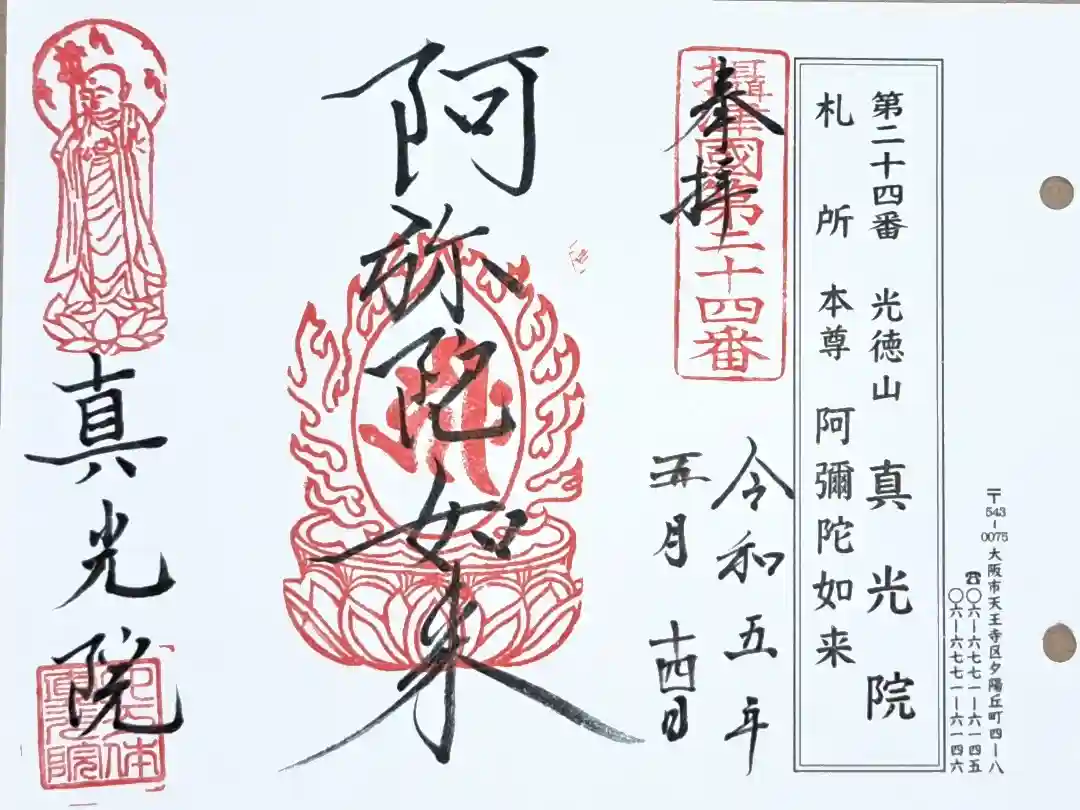 〒543-0075 大阪市天王寺区夕陽丘町四-八
☎〇六-六七七一-六一四五
〇六-六七七一-六一四六
第二十四番 光徳山 真光院
札所本尊 阿彌陀如来
奉拝
攝津國第二十四番
令和五年
五月十四日
阿弥陀如来
真光院